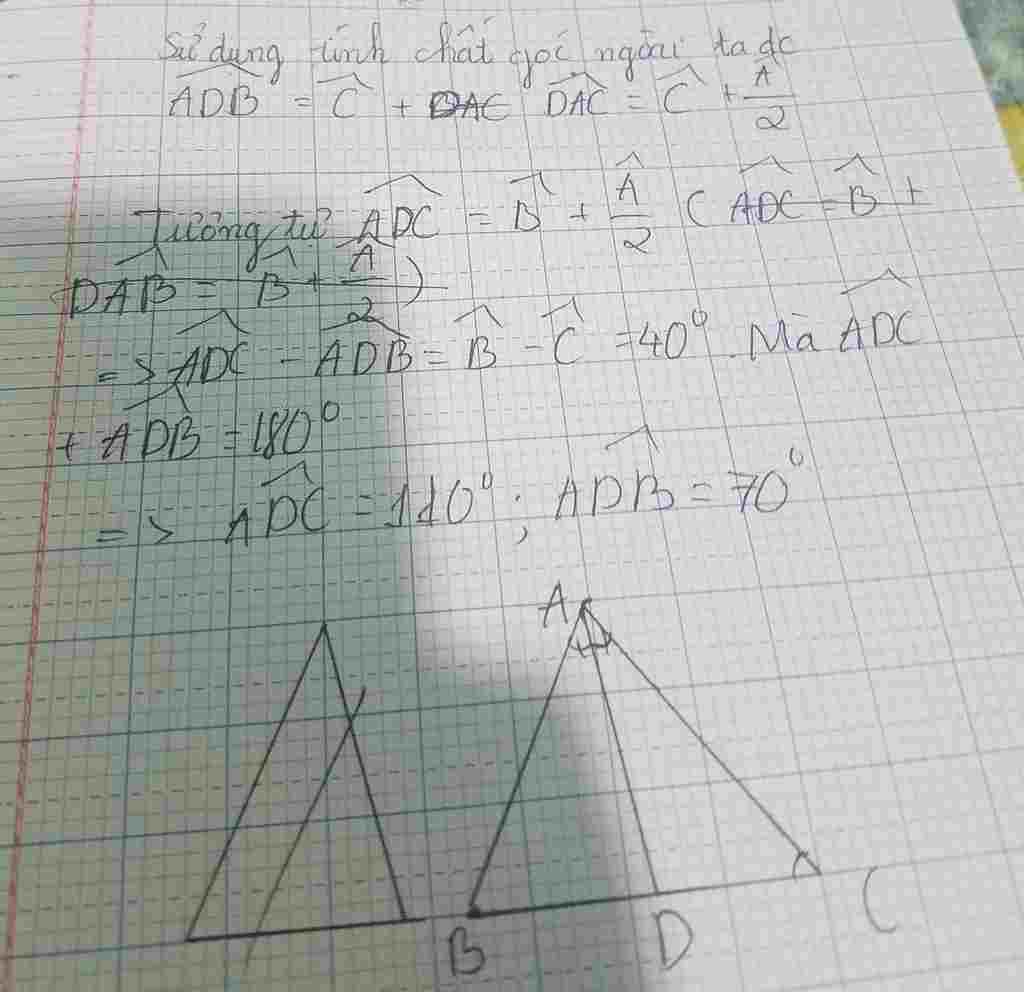 Sử dụng tính chất góc ngoài ta dc
\widehat{ADB} = \widehat{C} + DAC \widehat{DAC} = \widehat{C} + \frac{\widehat{A}}{2}
Tương tự \widehat{ADC} = \widehat{B} + \frac{\widehat{A}}{2} ( \widehat{ADC} = \widehat{B} +
\widehat{DAB} = \widehat{B} + \frac{\widehat{A}}{2} )
=> \widehat{ADC} - \widehat{ADB} = \widehat{B} - \widehat{C} = 40°. Mà \widehat{ADC}
+ \widehat{ADB} = 180°
=> \widehat{ADC} = 110° ; \widehat{ADB} = 70°
A
B D C